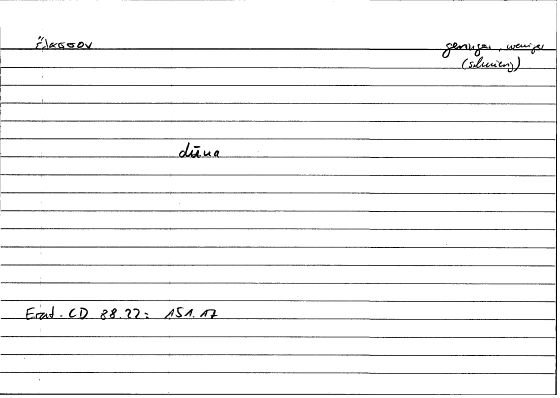 ἔλασσον
geringer, weniger
(schwierig)
dūna
Erat. CD 88.22: 151.17